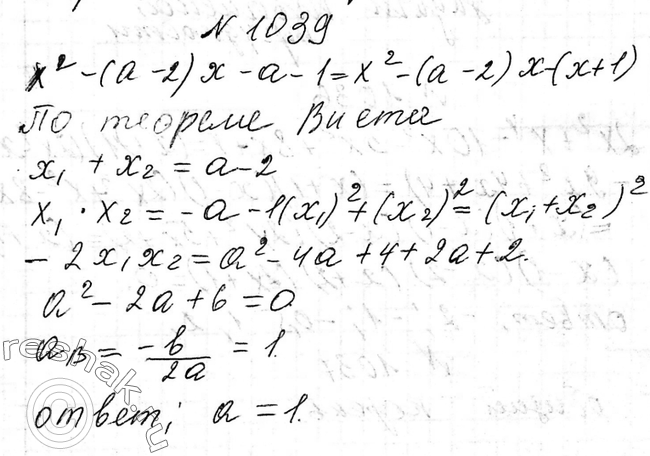 N 1039
x² -(a -2) x -a -1 = x² -(a -2) x-(x+1)
По теореме Виета
x₁ + x₂ = a -2
x₁ · x₂ = -a -1(x₁)² + (x₂)² = (x₁+x₂)²
- 2x₁x₂ = a² - 4a + 4 + 2a + 2.
a² - 2a + 6 = 0
aв = -b/2a = 1.
ответ; a = 1.
reshak.ru